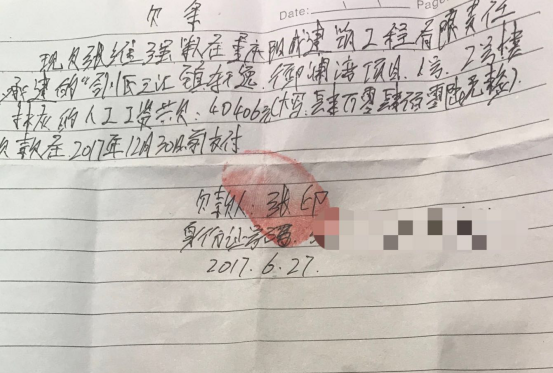 欠条
Date:
Pag
现欠张维强班在重庆阳成建筑工程有限责任
承建的"三江镇 御澜海项目.1号.2号楼
抹灰的人工工资共欠:40406元(大写:肆万零肆佰零陆元整).
欠款在2017年12月30日前支付
欠款人:张印
身份证号码:
2017.6.27.